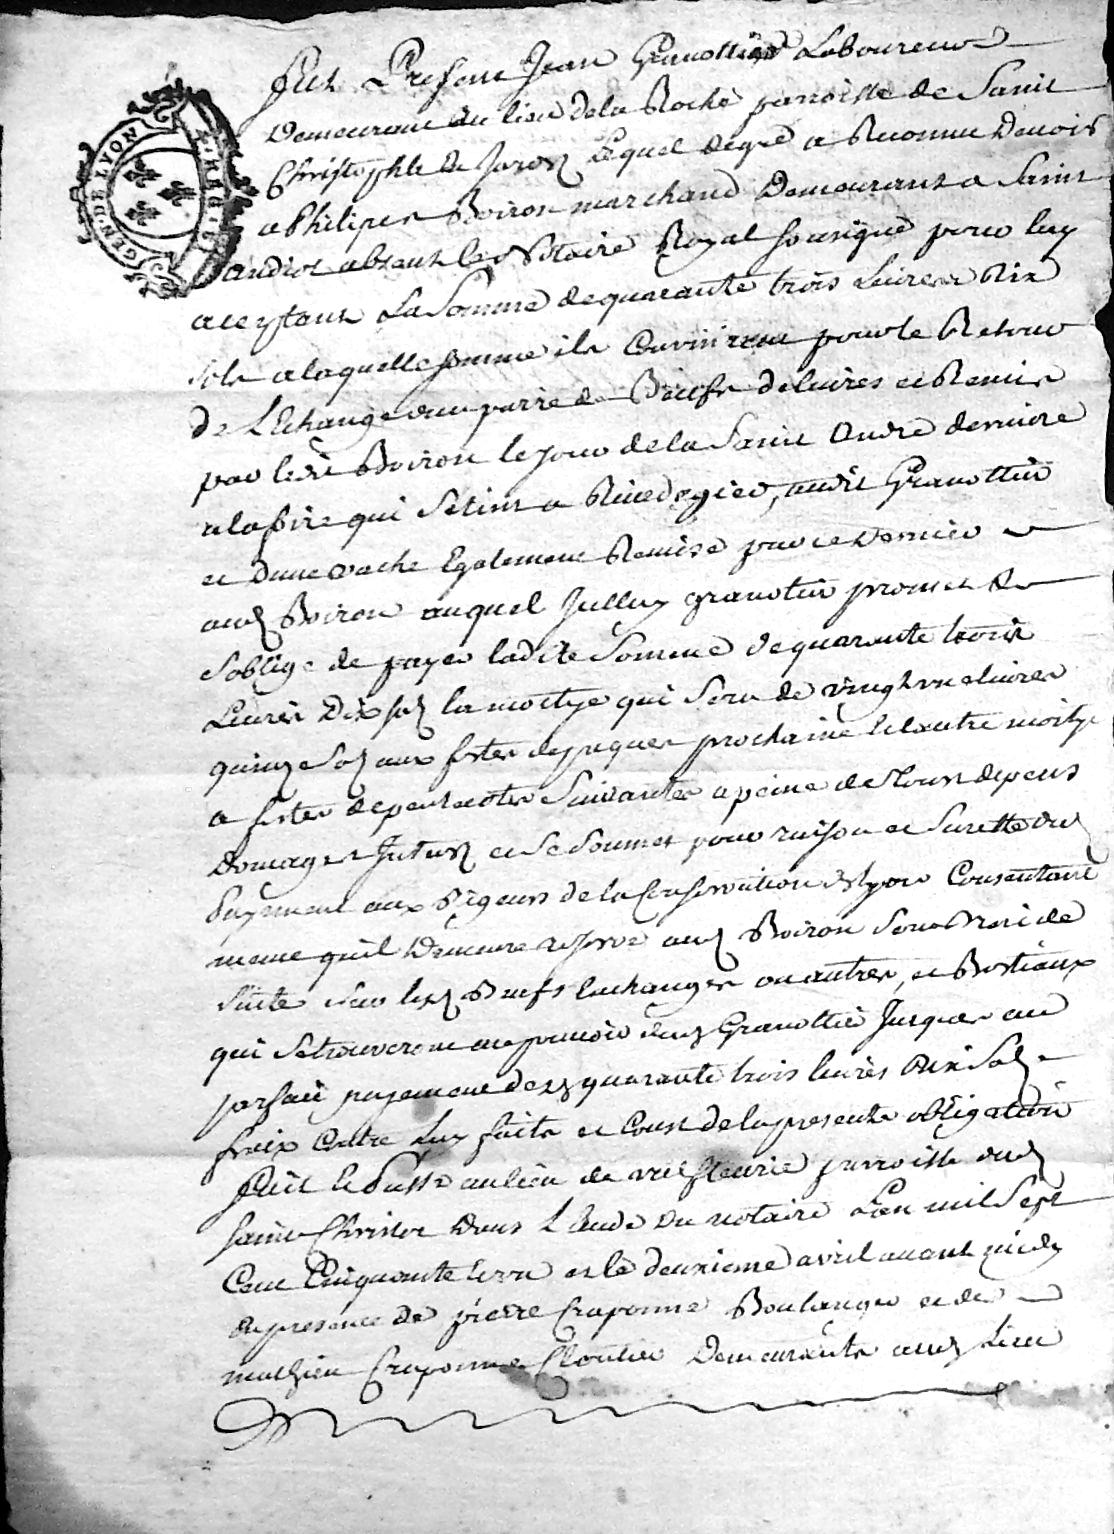 GEN. DE LYON
Fut Present Jean Granottier Laboureur
Demeurant au lieu de la Roche parroisse de Saint
Christophle de Jarez Lequel de gré a Reconnu Devoir
a Philiper Boiron marchand Demeurant a Saint
andiol absent le Notaire Royal sousigné pour luy
aceptant La Somme de quarante trois Livres Dix
sols a laquelle somme ils Convinrent pour le Retour
De L'Echange dun parre de Bœufs delivres et Remis
par ledit Boiron le jour de la Saint André derniere
a la foire qui Setint a Rivedegier, audit Granottier
et Dune vache Egalement Remise par ce Dernier
aud Boiron auquel Jcelluy granotier promet &
soblige de payer ladite Somme de quarante trois
Livres Dix sols la moitye qui sera de vingt une livres
quinze sols aux festes de paques prochaine & lautre moitye
a festes de pentecotes Suivantes a peine de Tous depens
Domages Jnterets et Se Soumet pour raison et Surette du
payement aux Rigeurs de la Conservation de Lyon Consentant
meme quil Demeure reservé aud Boiron Son Droit de
Suite sur lesd Bœufs Echanges ou autres, et Bestiaux
qui Setrouveront au pouvoir dud Granottier Jusques au
parfait payement desd quarante trois livres Dix Sols
fraix Contre Luy faits et Coust de la presente obligation
Fait & Passé au lieu de valfleurie parroisse dud
saint Christor Dans L'Etude Du notaire L'an mil Sept
Cent Cinquante & un et le deuxieme avril avant midy
En presence de pierre Craponne Boulanger et de
mathieu Craponne Cloutier Demeurants aud Lieu